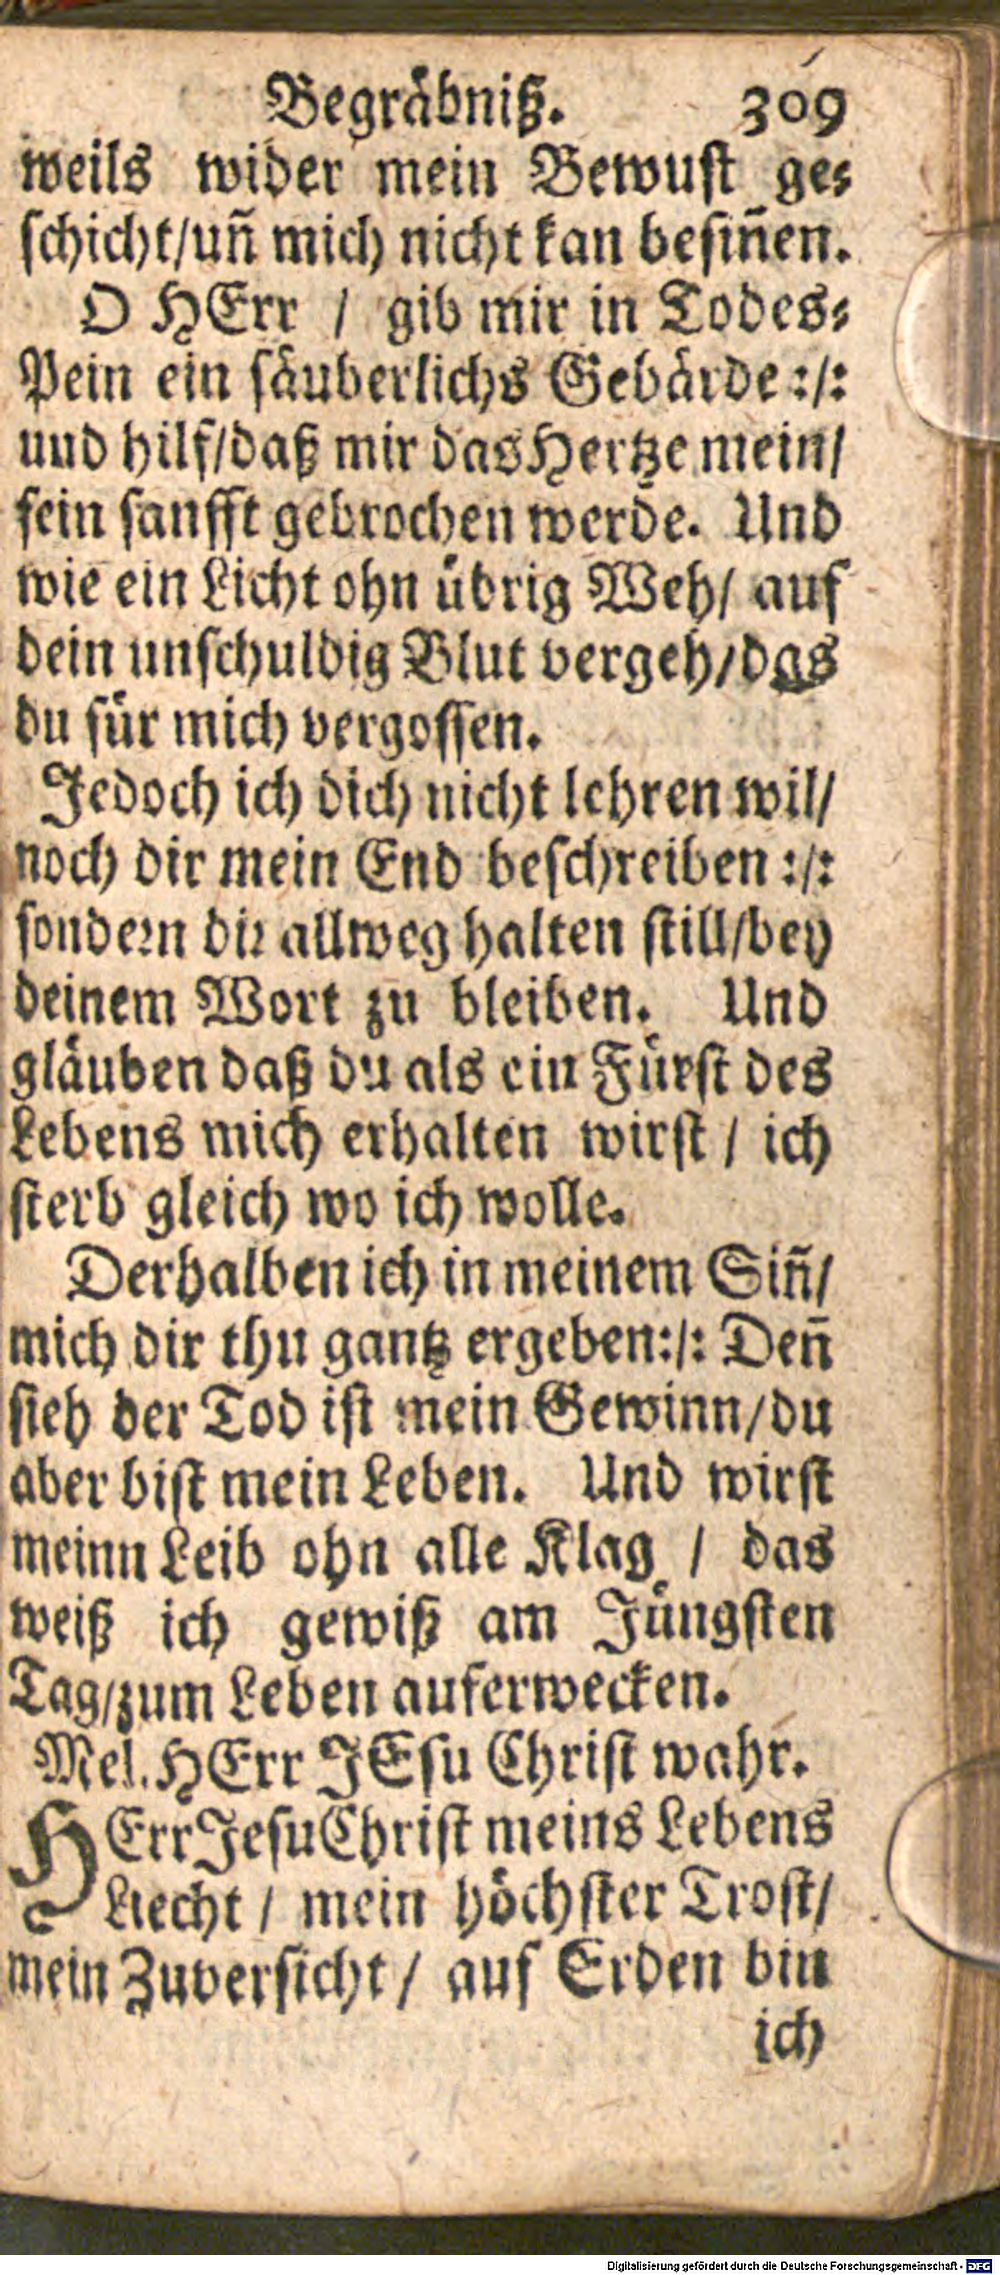 Begräbniß. 309
weils wider mein Bewust ge-
schicht/uñ mich nicht kan besiñen.
O HErr / gib mir in Todes-
Pein ein säuberlichs Gebärde :/:
und hilf/daß mir das Hertze mein/
fein sanfft gebrochen werde. Und
wie ein Licht ohn übrig Weh/ auf
dein unschuldig Blut vergeh/das
du für mich vergossen.
Jedoch ich dich nicht lehren wil/
noch dir mein End beschreiben :/:
sondern dir allweg halten still/bey
deinem Wort zu bleiben. Und
gläuben daß du als ein Fürst des
Lebens mich erhalten wirst / ich
sterb gleich wo ich wolle.
Derhalben ich in meinem Siñ/
mich dir thu gantz ergeben:/: Deñ
sieh der Tod ist mein Gewinn/du
aber bist mein Leben. Und wirst
meinn Leib ohn alle Klag / das
weiß ich gewiß am Jüngsten
Tag/zum Leben auferwecken.
Mel. HErr JEsu Christ wahr.
HErr Jesu Christ meins Lebens
Liecht / mein höchster Trost/
mein Zuversicht / auf Erden bin
ich
Digitalisierung gefördert durch die Deutsche Forschungsgemeinschaft - DFG